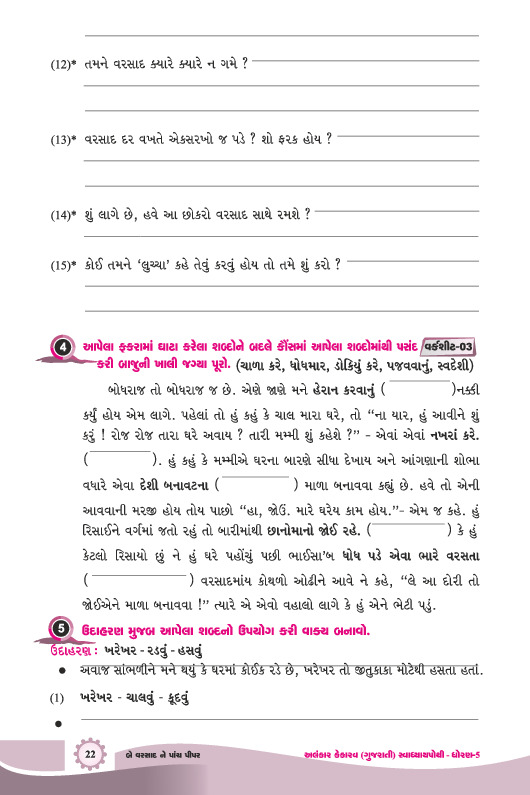 (12)* તમને વરસાદ ક્યારે ક્યારે ન ગમે ?
(13)* વરસાદ દર વખતે એકસરખો જ પડે ? શો ફરક હોય ?
(14)* શું લાગે છે, હવે આ છોકરો વરસાદ સાથે રમશે ?
(15)* કોઈ તમને ‘લુચ્ચા’ કહે તેવું કરવું હોય તો તમે શું કરો ?
4 આપેલા ફકરામાં ઘાટા કરેલા શબ્દોને બદલે કૌંસમાં આપેલા શબ્દોમાંથી પસંદ વર્કશીટ-03
કરી બાજુની ખાલી જગ્યા પૂરો. (ચાળા કરે, ધોધમાર, ડોકિયું કરે, પજવવાનું, સ્વદેશી)
બોધરાજ તો બોધરાજ જ છે. એણે જાણે મને હેરાન કરવાનું ( )નક્કી
કર્યું હોય એમ લાગે. પહેલાં તો હું કહું કે ચાલ મારા ઘરે, તો “ના યાર, હું આવીને શું
કરું ! રોજ રોજ તારા ઘરે અવાય ? તારી મમ્મી શું કહેશે ?” - એવાં એવાં નખરાં કરે.
( ). હું કહું કે મમ્મીએ ઘરના બારણે સીધા દેખાય અને આંગણાની શોભા
વધારે એવા દેશી બનાવટના ( ) માળા બનાવવા કહ્યું છે. હવે તો એની
આવવાની મરજી હોય તોય પાછો “હા, જોઉં. મારે ઘરેય કામ હોય.”- એમ જ કહે. હું
રિસાઈને વર્ગમાં જતો રહું તો બારીમાંથી છાનોમાનો જોઈ રહે. ( ) કે હું
કેટલો રિસાયો છું ને હું ઘરે પહોંચું પછી ભાઈસા’બ ધોધ પડે એવા ભારે વરસતા
( ) વરસાદમાંય કોથળો ઓઢીને આવે ને કહે, “લે આ દોરી તો
જોઈએને માળા બનાવવા !” ત્યારે એ એવો વહાલો લાગે કે હું એને ભેટી પડું.
5 ઉદાહરણ મુજબ આપેલા શબ્દનો ઉપયોગ કરી વાક્ય બનાવો.
ઉદાહરણ : ખરેખર - રડવું - હસવું
● અવાજ સાંભળીને મને થયું કે ઘરમાં કોઈક રડે છે, ખરેખર તો જીતુકાકા મોટેથી હસતા હતાં.
(1) ખરેખર - ચાલવું - કૂદવું
●
22 બે વરસાદ ને પાંચ પીપર અલંકાર કેકારવ (ગુજરાતી) સ્વાધ્યાયપોથી - ધોરણ-5